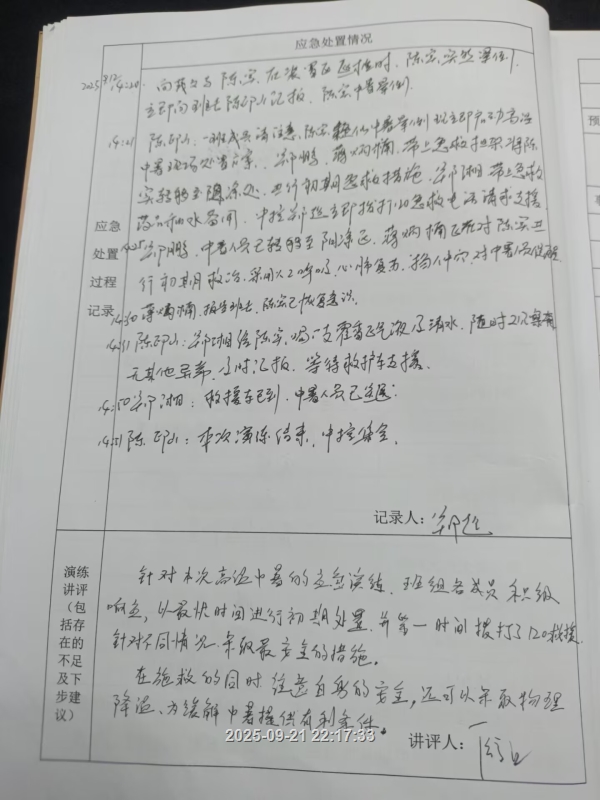 应急处置情况
2025 14:20 向 陈宏 在装置区巡检时，陈宏突然晕倒，
立即向班长陈邱山汇报，陈宏中暑晕倒。
14:21 陈邱山：一班成员请注意，陈宏 中暑晕倒 现立即启动高温
中暑现场处置方案，郑鹏、蒋炳楠，带上急救 将陈
宏转移至阴凉处，进行初期急救措施，郑湘带上急救
药品和水备用，中控郑 立即拨打120急救电话请求支援
14:25 郑鹏：中暑人员已转移至阴凉区，蒋炳楠正在对陈宏进
行初期救治，采用人工呼吸，心肺复苏，掐人中穴，对中暑人员
14:30 蒋炳楠：报告班长，陈宏已恢复意识。
14:31 陈邱山：郑湘给陈宏喝一支藿香正气液及清水，随时观察有
无其他异常，及时汇报，等待救护车支援。
14:50 郑湘：救援车已到，中暑人员已送医。
14:51 陈邱山：本次演练结束，中控集合。
应急
处置
过程
记录
记录人：郑
演练
讲评
（包
括存
在的
不足
及下
步建
议）
针对本次高温中暑的应急演练，班组各成员积极
响应，以最快时间进行初期处置，并第一时间拨打了120救援，
针对不同情况采取最安全的措施。
在施救的同时注意自身的安全，还可以采取物理
降温，为缓解中暑提供有利条件。
讲评人：
2025-09-21 22:17:33
预